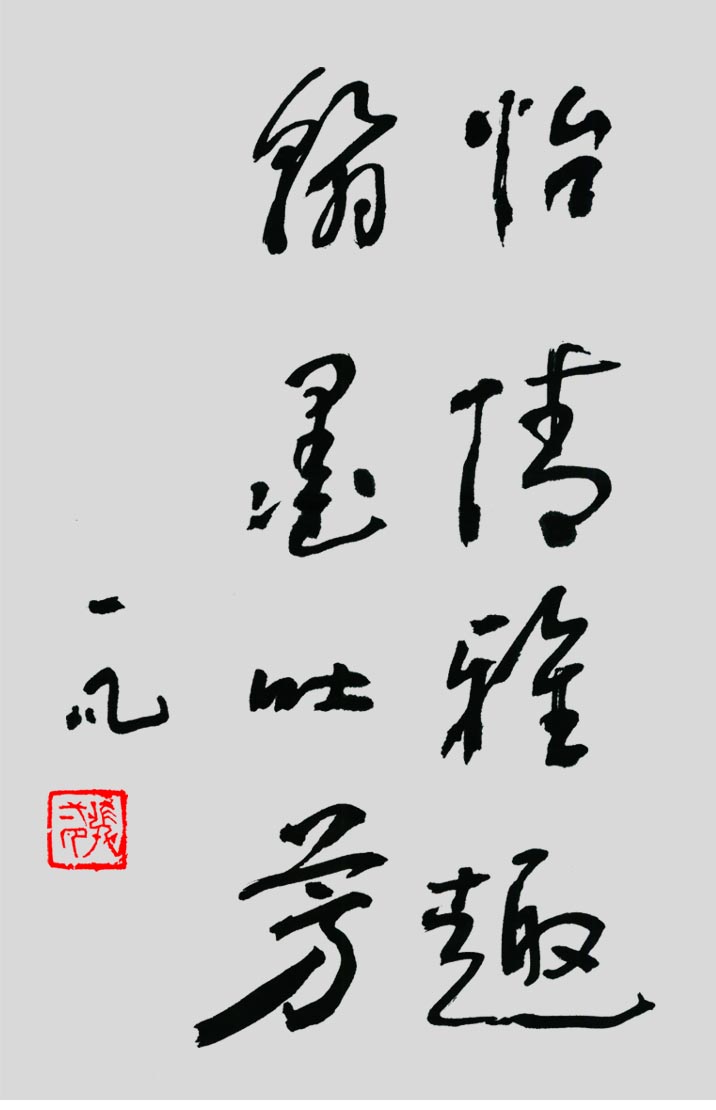 怡情雅趣
翰墨吐芳
一凡